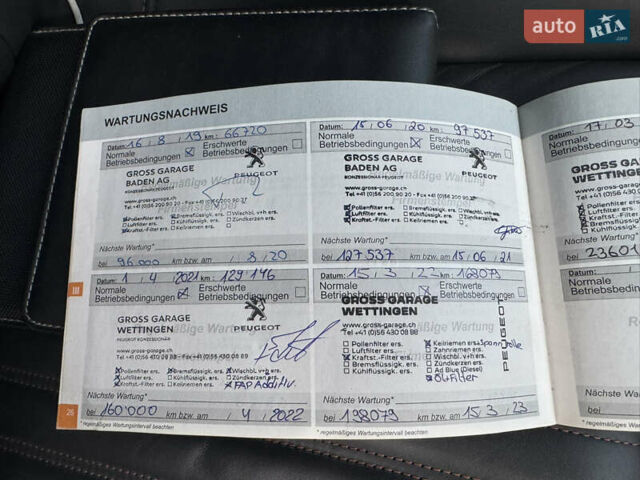 auto RIA .com
WARTUNGSNACHWEIS
Datum: 16 8 19 km: 66720
Normale Betriebsbedingungen Erschwerte Betriebsbedingungen
GROSS GARAGE
BADEN AG
KONZESSIONÄR PEUGEOT
PEUGEOT
www.gross-garage.ch
Tel +41 (0)56 200 90 20 - Fax +41 (0)56 200 90 27
Pollenfilter ers. Bremsflüssigk. ers. Wischbl. v+h ers.
Luftfilter ers. Kühlflüssigk. ers. Zündkerzen ers.
Kraftst.-Filter ers. Keilriemen ers.
Nächste Wartung*
bei 96000 km bzw. am 8 / 20
Datum: 15 06 20 km: 97537
Normale Betriebsbedingungen Erschwerte Betriebsbedingungen
GROSS GARAGE
BADEN AG
KONZESSIONÄR PEUGEOT
PEUGEOT
www.gross-garage.ch
Pollenfilter ers. Bremsflüssigk. ers. Wischbl. v+h ers.
Luftfilter ers. Kühlflüssigk. ers. Zündkerzen ers.
Kraftst.-Filter ers. Keilriemen ers.
Nächste Wartung*
bei 127537 km bzw. am 15 / 06 / 21
Datum: 1 4 2021 km: 129146
Normale Betriebsbedingungen Erschwerte Betriebsbedingungen
GROSS GARAGE
WETTINGEN
PEUGEOT KONZESSIONÄR
PEUGEOT
gross-garage.ch
Tel +41 (0)56 430 08 88 - Fax +41 (0)56 430 08 89
Pollenfilter ers. Bremsflüssigk. ers. Wischbl. v+h ers.
Luftfilter ers. Kühlflüssigk. ers. Zündkerzen ers.
Kraftst.-Filter ers. Keilriemen ers. FAP Additiv.
Nächste Wartung*
bei 160'000 km bzw. am / 4 / 2022
* regelmäßiges Wartungsintervall beachten
Datum: 15 3 23 km: 168079
Normale Betriebsbedingungen Erschwerte Betriebsbedingungen
GROSS GARAGE
WETTINGEN
PEUGEOT
www.gross-garage.ch
Tel. +41 (0)56 430 08 88
Pollenfilter ers. Keilriemen ers. Spannrolle
Luftfilter ers. Zahnriemen ers.
Kraftst.-Filter ers. Wischbl. v+h ers.
Bremsflüssigk. ers. Zündkerzen ers.
Kühlflüssigk. ers. Ad Blue (Diesel)
Ölfilter
Nächste Wartung*
bei 198079 km bzw. am 15 / 3 / 23
* regelmäßiges Wartungsintervall beachten
III
26
Datum: 17 03
Normale
Betriebsbedingungen
GROSS GARAGE
WETTINGEN
www.gross-garage.ch
Nächste Wartung*
bei
* regelmäßiges